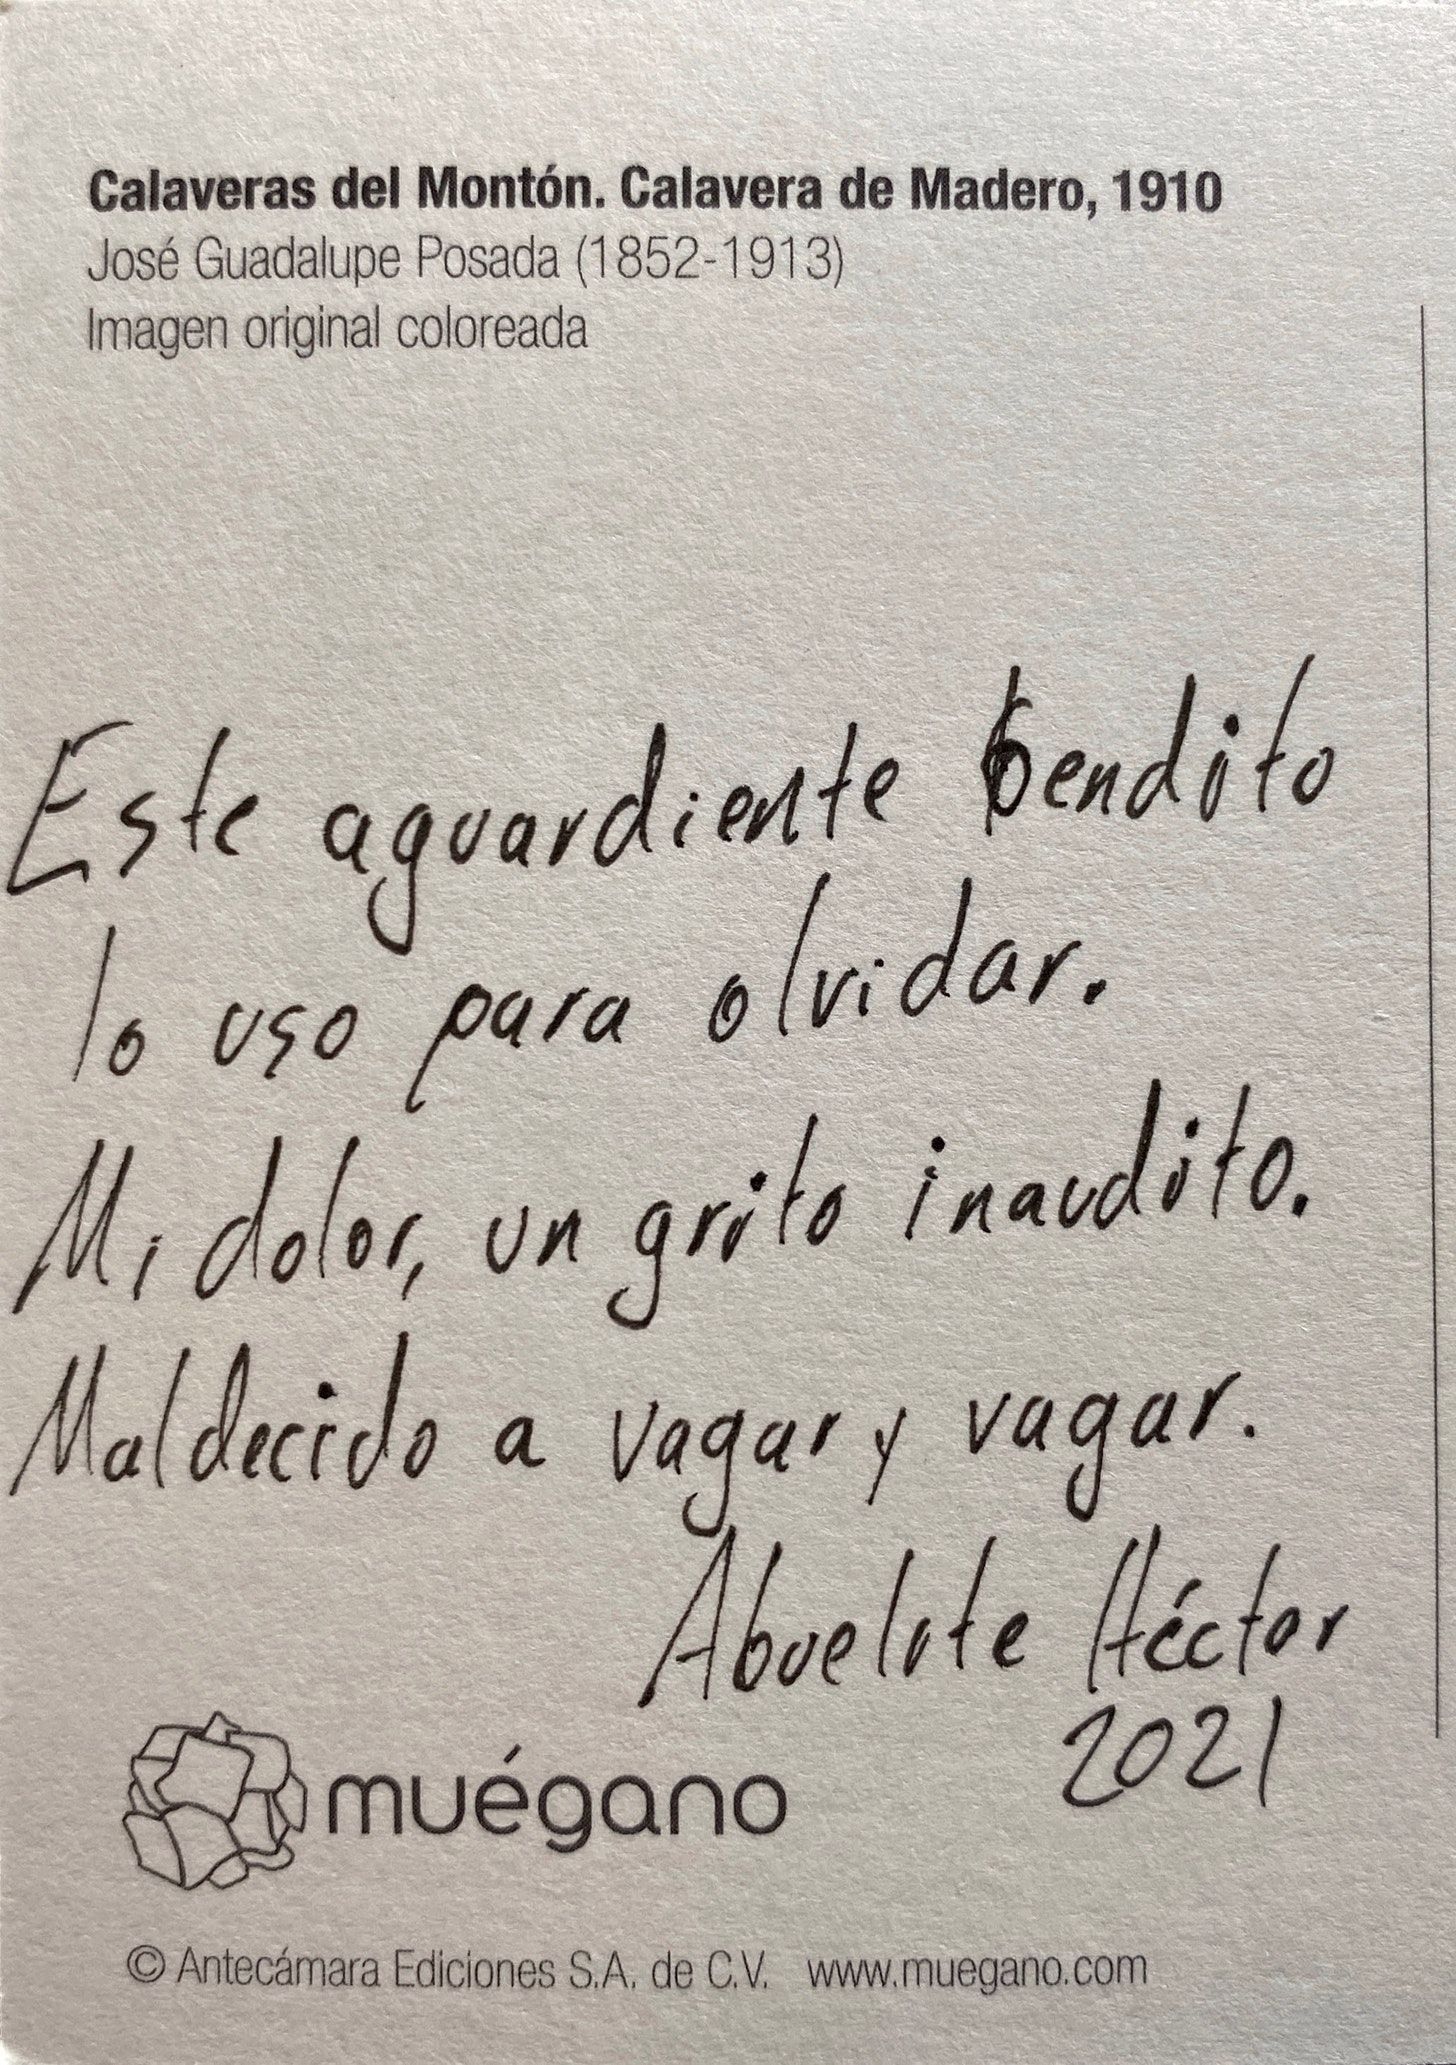 Calaveras del Montón. Calavera de Madero, 1910
José Guadalupe Posada (1852-1913)
Imagen original coloreada
Este aguardiente bendito
lo uso para olvidar.
Mi dolor, un grito inaudito.
Maldecido a vagar y vagar.
Abuelite Héctor
2021
muégano
© Antecámara Ediciones S.A. de C.V. www.muegano.com